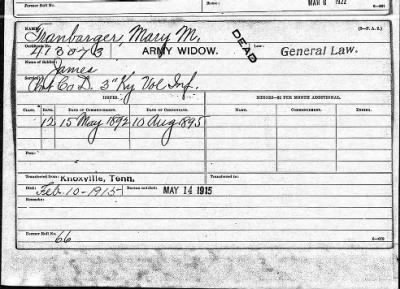 Former Roll No.
Home:
MAR 6 1922
3—367
Tranbarger, Mary M. (3—F. A. S.)
Certificate No. 413073 ARMY WIDOW. DEAD Law: General Law.
Name of Soldier: James
Service: Co D. 3" Ky Vol Inf.
ISSUES. MINORS—$2 PER MONTH ADDITIONAL.
CLASS. RATE. DATE OF COMMENCEMENT. DATE OF CERTIFICATE. NAME. COMMENCEMENT. EXPIRATION.
12 15 May 1892 10 Aug 1895
Transferred from Knoxville, Tenn. Transferred to
Died: Feb. 10-1915 Bureau notified: MAY 14 1915
Remarks:
Former Roll No. 66